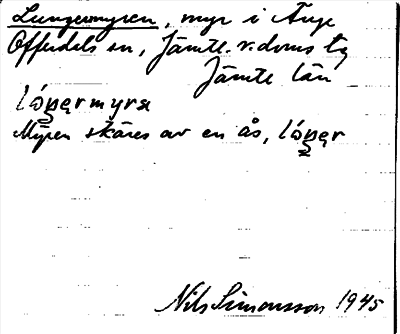 Lungermyren, myr i Ånge
Offerdals sn, Jämtl. v. doms. tg
Jämte län
lóŋərmyra
Myren skäres av en ås, lóŋər
Nils Simonsson 1945